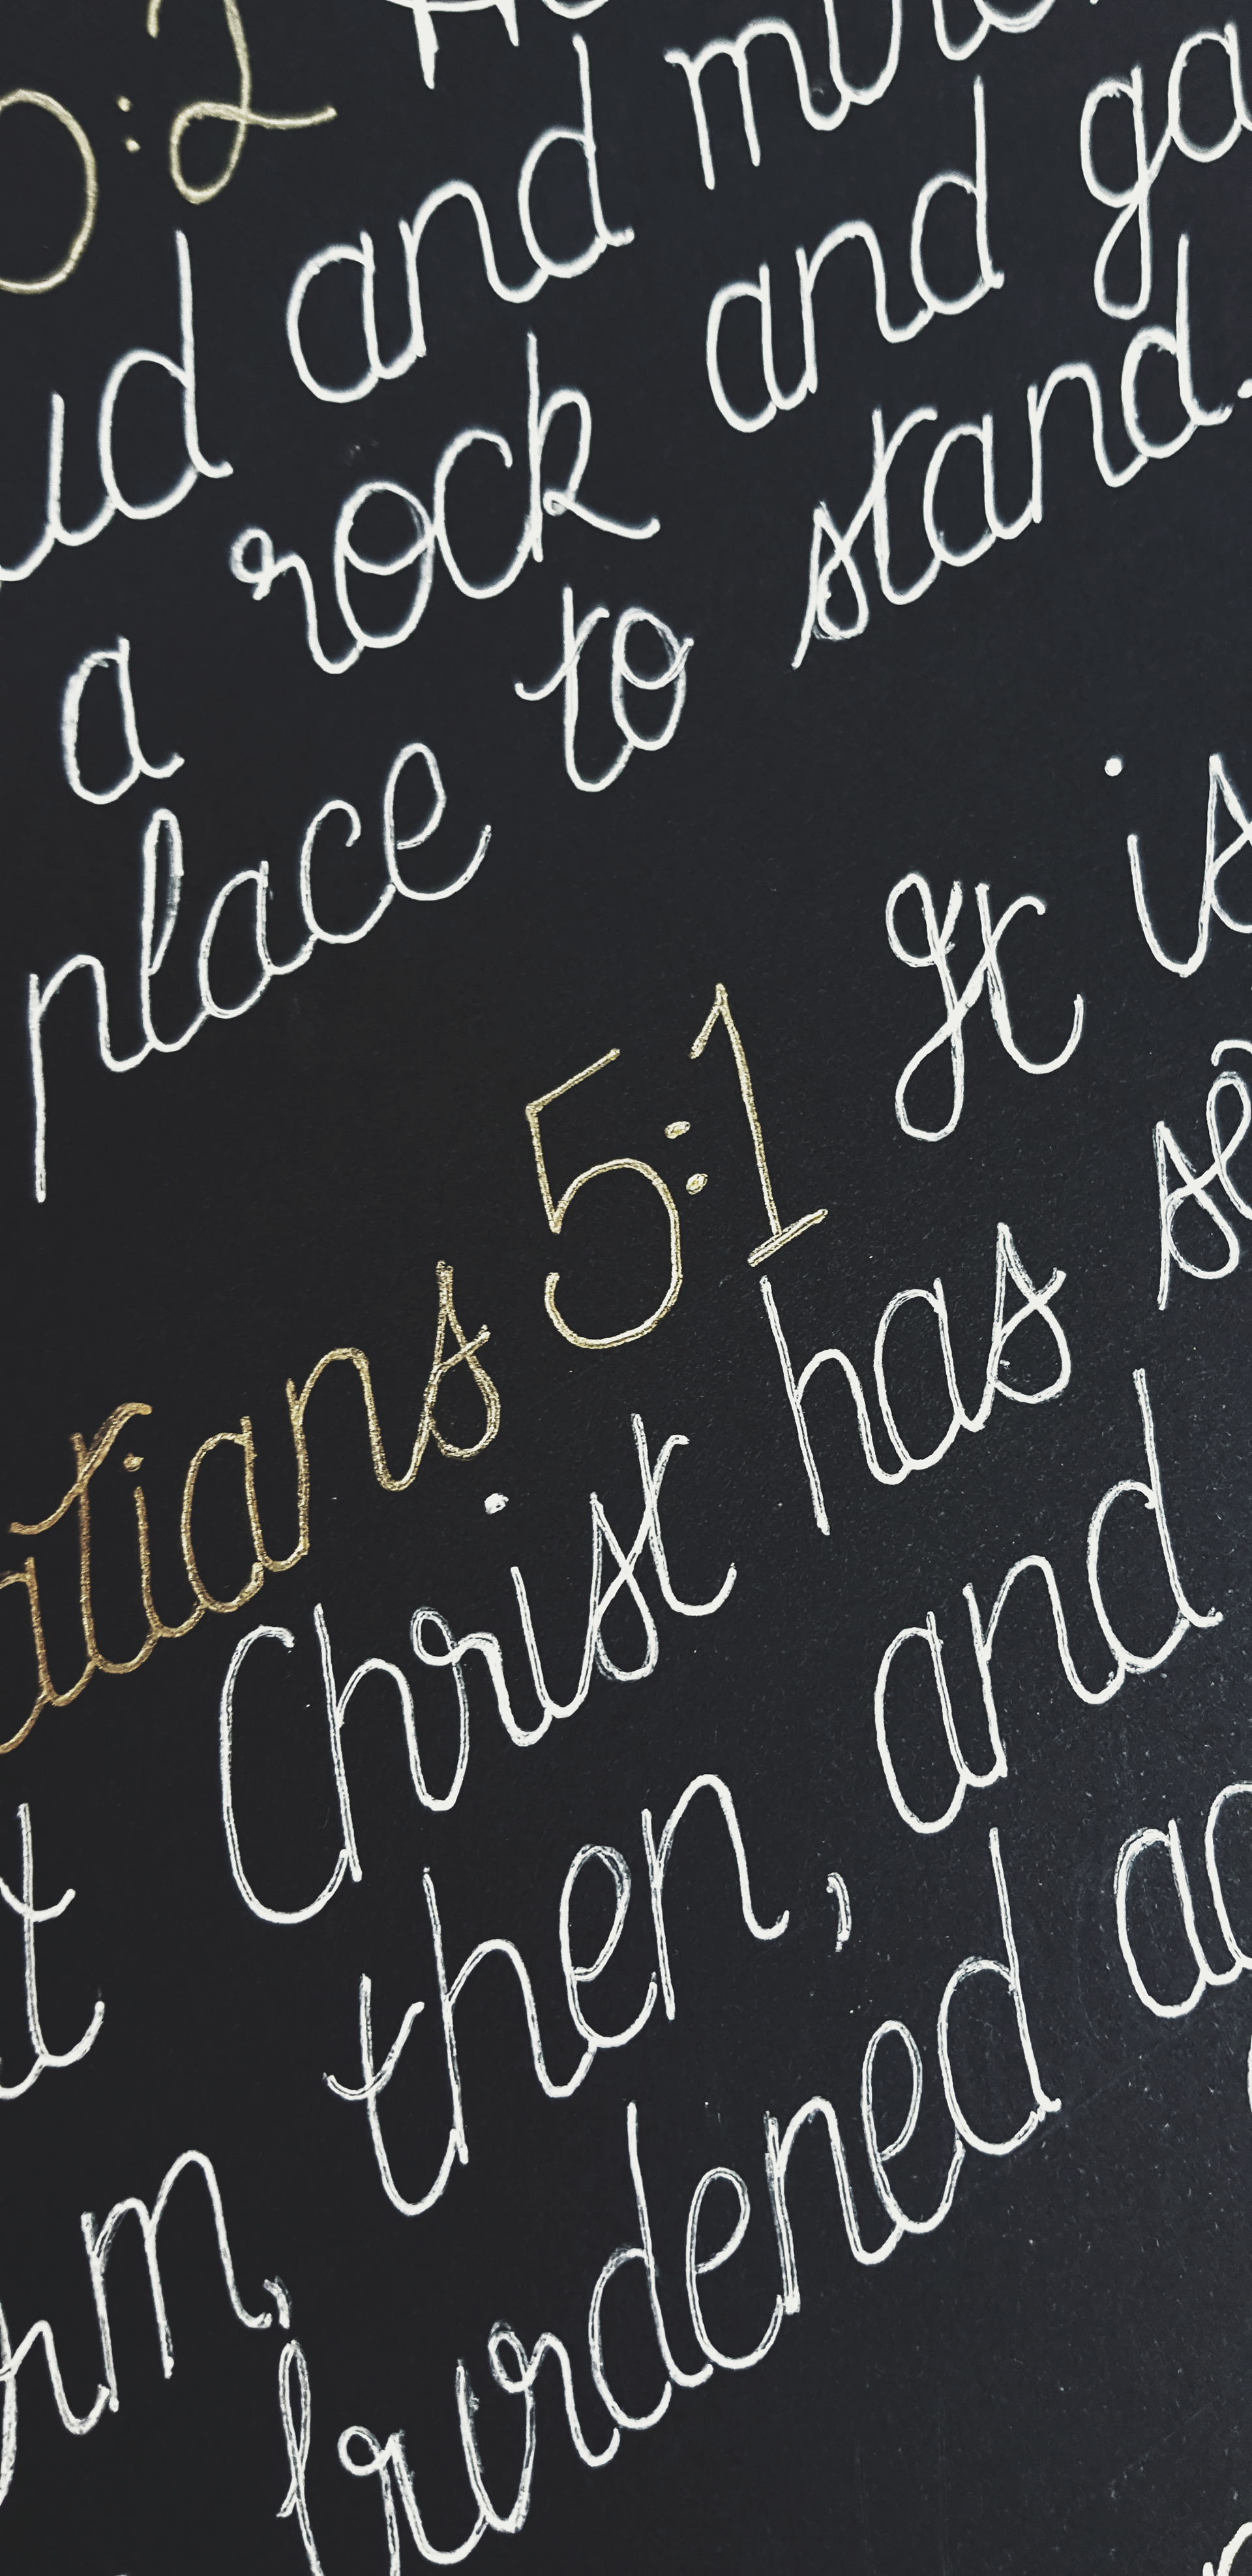 0:2
ud and
a rock and ga
place to stand.
atians 5:1 It is
t Christ has se
rm, then, and
burdened